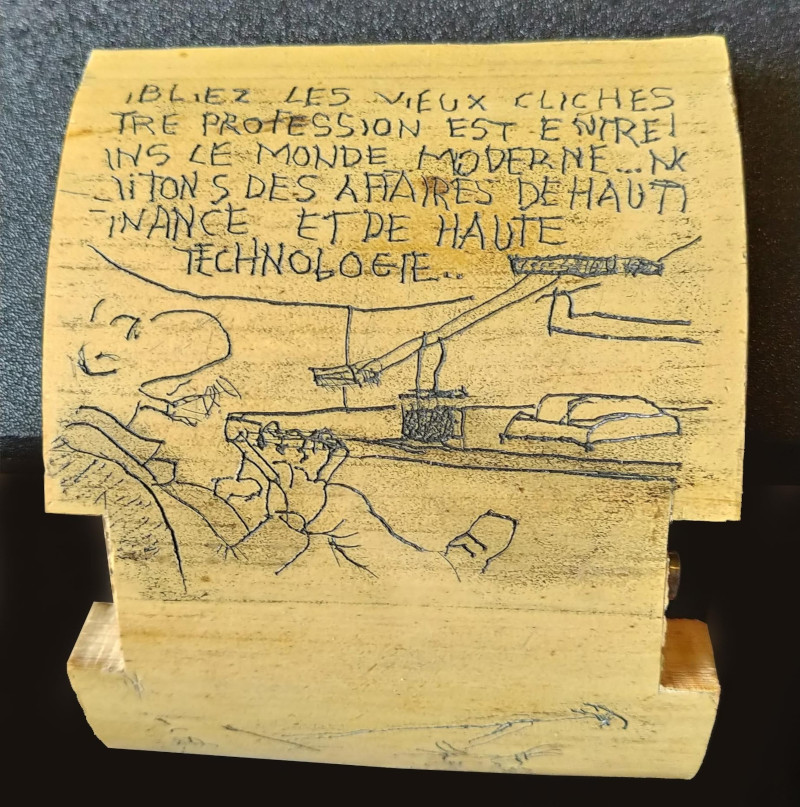 IBLIEZ LES VIEUX CLICHES
TRE PROFESSION EST ENTREI
INS LE MONDE MODERNE...N
AITONS DES AFFAIRES DE HAUT
INANCE ET DE HAUTE
TECHNOLOGIE..